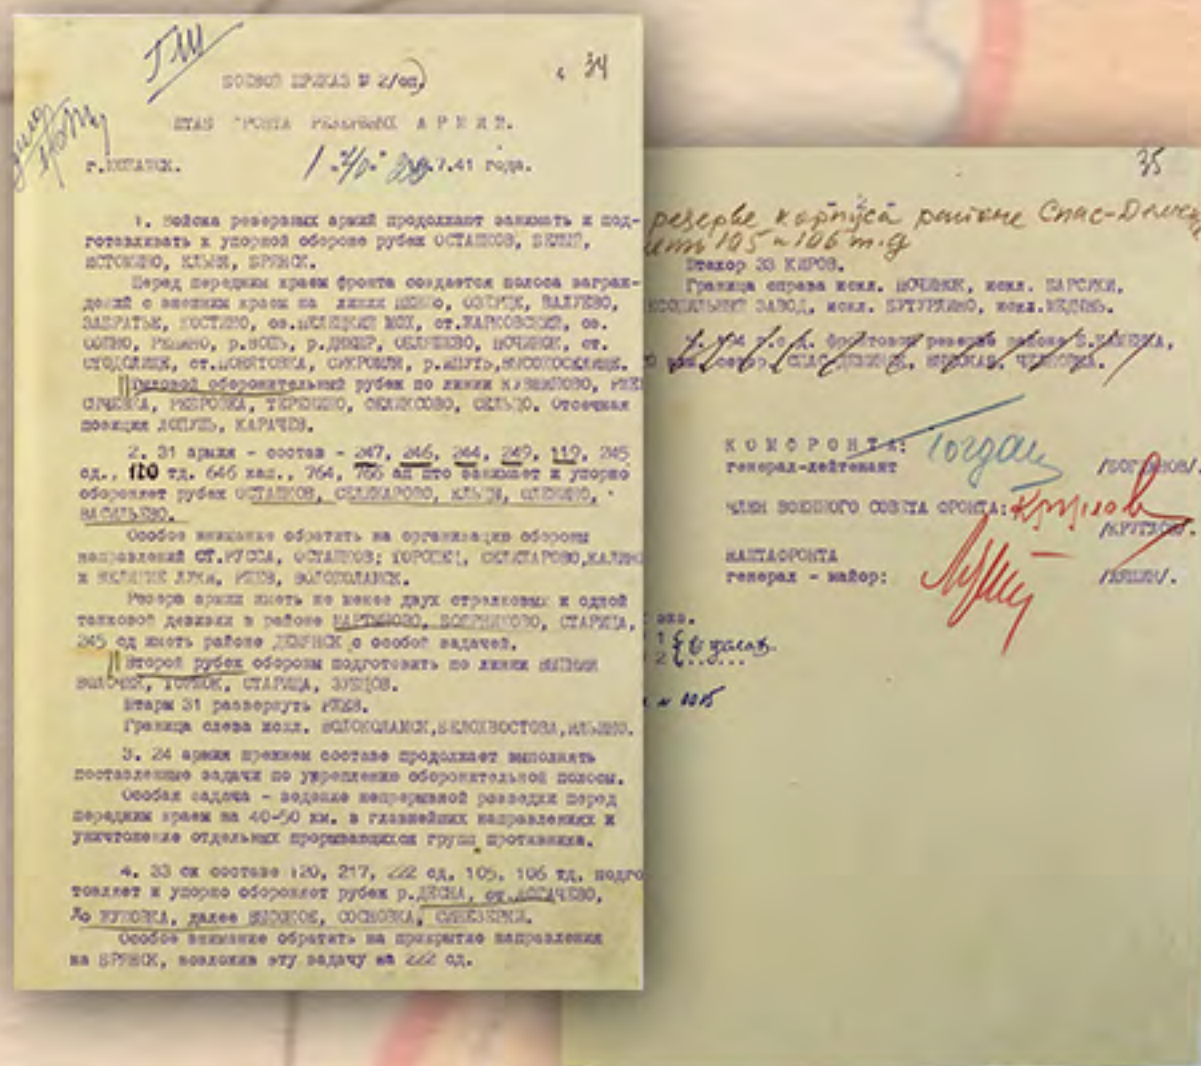 34
БОЕВОЙ ПРИКАЗ № 2/оп
ШТАБ ФРОНТА РЕЗЕРВНЫХ А Р М И Й.
7.41 года.
1. Войска резервных армий продолжают занимать и под-
готавливать к упорной обороне рубеж ОСТАШКОВ, БЕЛЫЙ,
ИСТОМИНО, ЕЛЬНЯ, БРЯНСК.
Перед передним краем фронта создается полоса заграж-
дений с внешним краем на линии ОЗЕРЦЕ, ВАЛУЕВО,
ЗАБРАТЬЕ, КОСТИНО, ст.ЖАРКОВСКИЙ, оз.
р.ВОПЬ, р.ДНЕПР, ПОЧИНОК, ст.
СТОДОЛИЩЕ, ст.ПОНЯТОВКА, СУКРОМЛЯ, р.ИПУТЬ,
Тыловой оборонительный рубеж по линии
СЫЧЕВКА, ТЕРЕНИНО, СЕЛЬЦО. Отсечная
позиция ЛОПУШЬ, КАРАЧЕВ.
2. 31 армия - состав - 247, 246, 244, 249, 119, 245
сд., 110 тд. 646 кап., 764, 766 ап пто занимает и упорно
обороняет рубеж ОСТАШКОВ, СЕЛИЖАРОВО, ОЛЕНИНО,
ВАСИЛЬЕВО.
Особое внимание обратить на организацию обороны
направлений СТ.РУССА, ОСТАШКОВ; ТОРОПЕЦ, СЕЛИЖАРОВО,КАЛИНИ
и ВЕЛИКИЕ ЛУКИ, РЖЕВ, ВОЛОКОЛАМСК.
Резерв армии иметь не менее двух стрелковых и одной
танковой дивизии в районе МАРТЫНОВО, СТАРИЦА,
245 сд иметь районе ДЕМЯНСК с особой задачей.
Второй рубеж обороны подготовить по линии ВЫШНИЙ
ВОЛОЧЕК, ТОРЖОК, СТАРИЦА, ЗУБЦОВ.
Штарм 31 развернуть РЖЕВ.
Граница слева искл. ВОЛОКОЛАМСК,БЕЛОХВОСТОВА,ИЛЬИНО.
3. 24 армия прежнем составе продолжает выполнять
поставленные задачи по укреплению оборонительной полосы.
Особая задача - ведение непрерывной разведки перед
передним краем на 40-50 км. в главнейших направлениях и
уничтожение отдельных прорывающихся групп противника.
4. 33 ск составе 120, 217, 222 сд, 105, 106 тд, подго
товляет и упорно обороняет рубеж р.ДЕСНА, от БОГАЧЕВО,
до ЖУКОВКА, далее ВЫСОКОЕ, СОСНОВКА, СИНЕЗЕРКИ.
Особое внимание обратить на прикрытие направления
на БРЯНСК, возложив эту задачу на 222 сд.
35
резерве корпуса районе Спас-Деменс
105 и 106 т.д
Штакор 33 КИРОВ.
Граница справа искл. ПОЧИНОК, искл. БАРСУКИ,
ЗАВОД, искл. БУТУРЛИНО, искл.МЕДЫНЬ.
К О М Ф Р О Н Т А:
генерал-лейтенант /БОГДАНОВ/.
ЧЛЕН ВОЕННОГО СОВЕТА ФРОНТА: Круглов
/КРУГЛОВ/.
НАШТАФРОНТА
генерал - майор: /ЛЯПИН/.
экз.
1
2